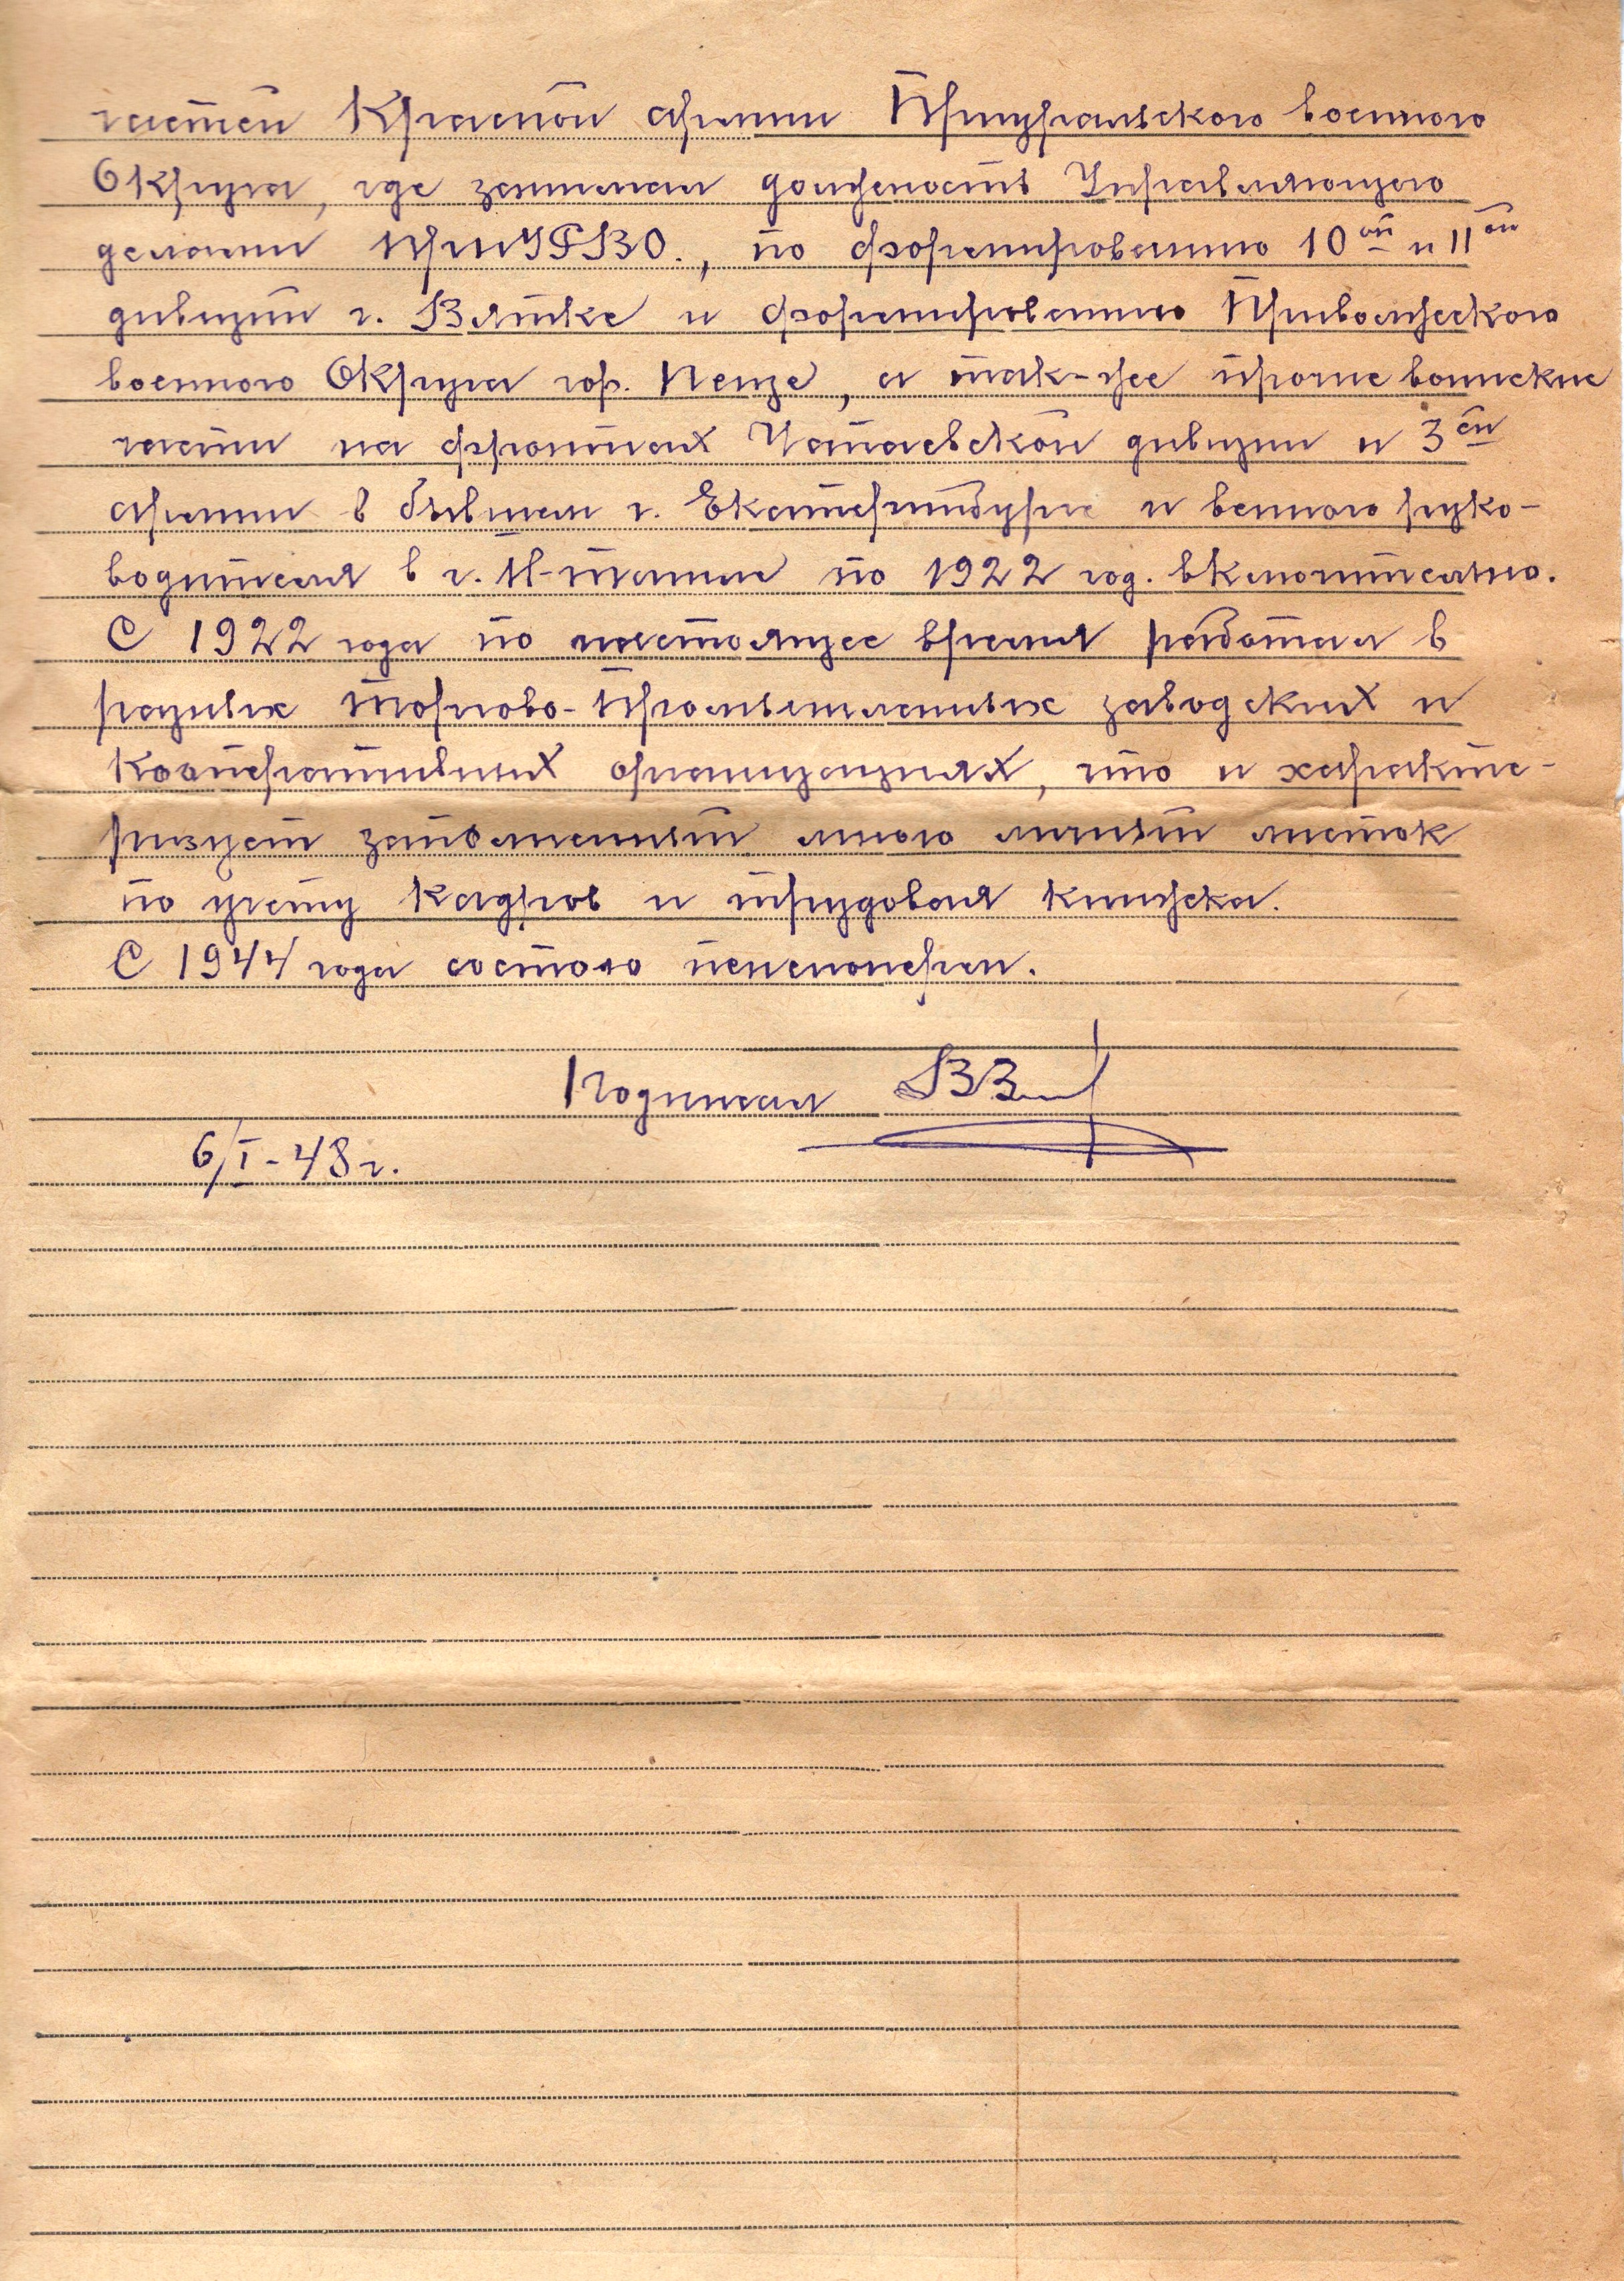 частей Красной армии Приуральского военного
Округа, где занимал должность Управляющего
делами ПриУРВО., по формированию 10ой и 11ой
дивизии г. Вятке и формированию Приволжского
военного Округа гор. Пензе, а так-же прочие воинские
части на фронтах Чапаевской дивизии и 3ей
армии в бывшем г. Екатеринбурге и венного руко-
водителя в г. Н-тагиле по 1922 год. включительно.
С 1922 года по настоящее время работал в
разных торгово-промышленных заводских и
кооперативных организациях, что и характе-
ризует заполненный мною личный листок
по учету кадров и трудовая книжка.
С 1944 года состою пенсионерам.
6/I-48г.